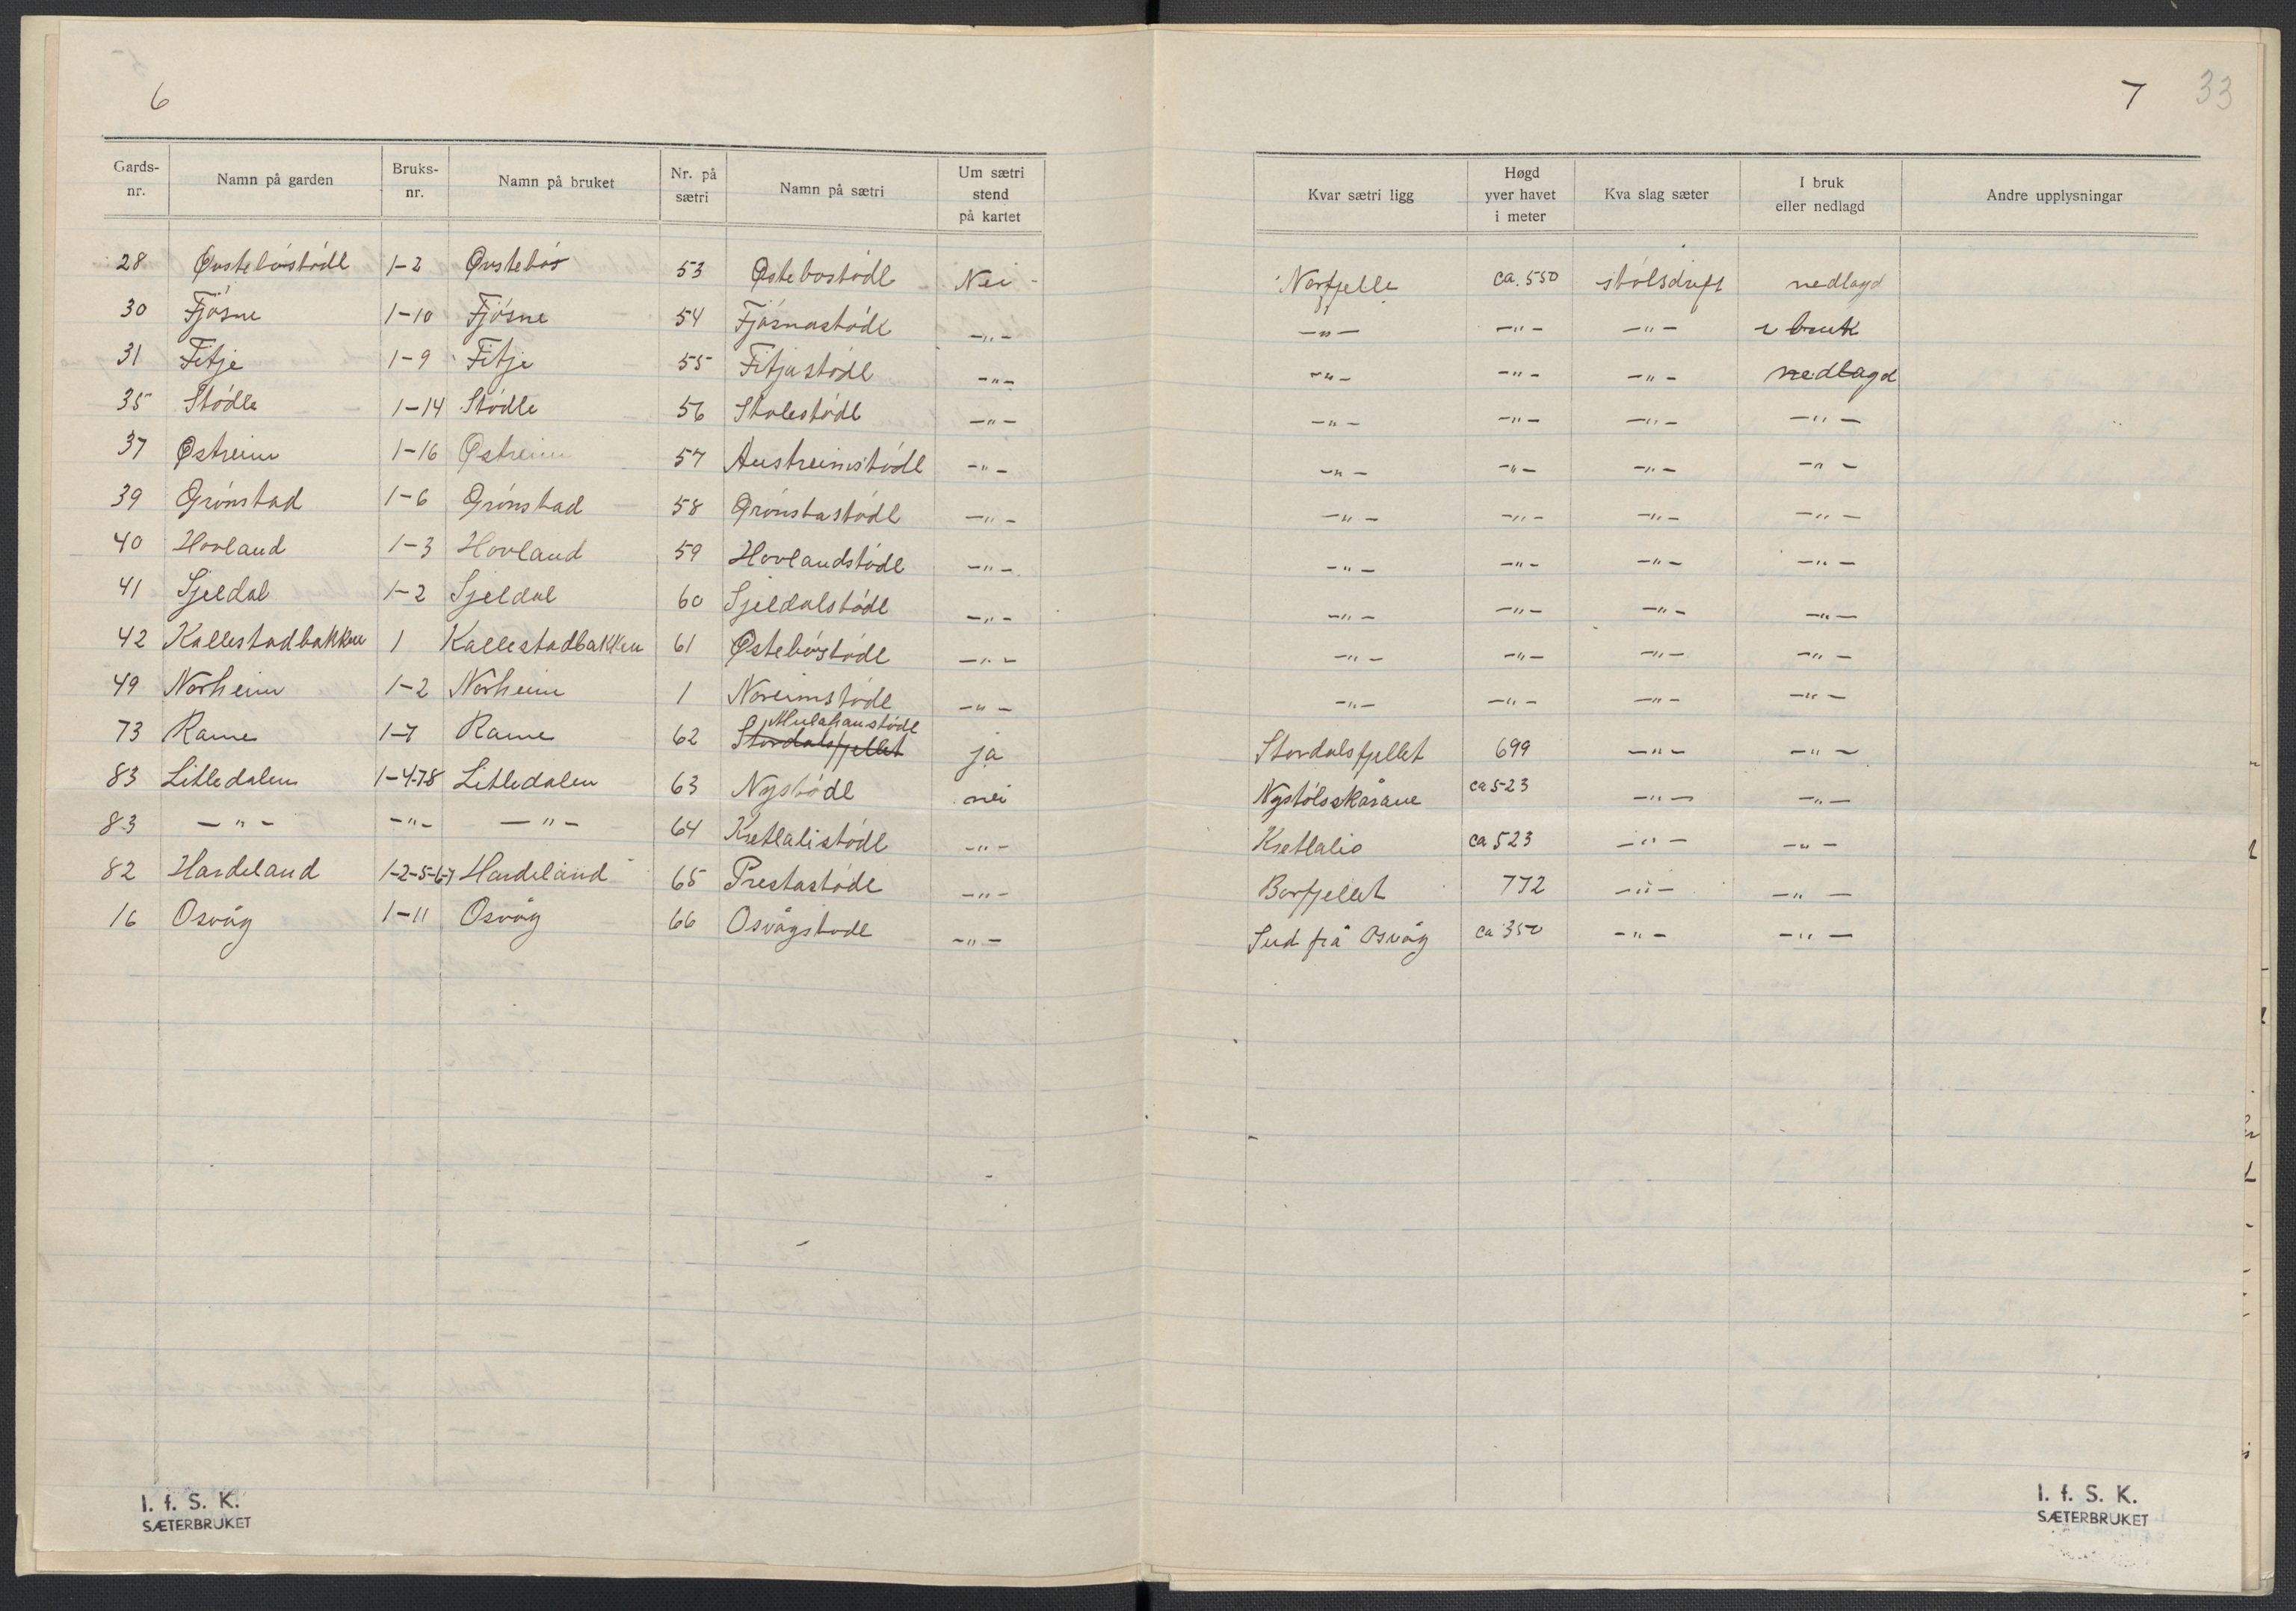 6
7 33
Gards-nr. Namn på garden Bruks-nr. Namn på bruket Nr. på sætri Namn på sætri Um sætri stend på kartet Kvar sætri ligg Høgd yver havet i meter Kva slag sæter I bruk eller nedlagd Andre upplysningar
28 Øvstebøstødl 1-2 Øvstebø 53 Østebøstødl Nei Norfjelle ca. 550 stølsdrift nedlagd
30 Fjøsne 1-10 Fjøsne 54 Fjøsnastødl -"- -"- -"- -"- i bruk
31 Fitje 1-9 Fitje 55 Fitjastødl -"- -"- -"- -"- nedlagd
35 Stødle 1-14 Stødle 56 Stølestødl -"- -"- -"- -"- -"-
37 Østreim 1-16 Østreim 57 Austreimstødl -"- -"- -"- -"- -"-
39 Grønstad 1-6 Grønstad 58 Grønstastødl -"- -"- -"- -"- -"-
40 Hovland 1-3 Hovland 59 Hovlandstødl -"- -"- -"- -"- -"-
41 Sjeldal 1-2 Sjeldal 60 Sjeldalstødl -"- -"- -"- -"- -"-
42 Kallestadbakken 1 Kallestadbakken 61 Østebøstødl -"- -"- -"- -"- -"-
49 Norheim 1-2 Norheim 1 Noreimstødl -"- -"- -"- -"- -"-
73 Rame 1-7 Rame 62 Stordalsfjellet ja Stordalsfjellet 699 -"- -"-
83 Litledalen 1-4-78 Litledalen 63 Nystødl nei Nystølsskårane ca 523 -"- -"-
83 -"- -"- -"- 64 Kretlalistødl -"- Kretlalio ca 523 -"- -"-
82 Hardeland 1-2-5-6-7 Hardeland 65 Prestastødl -"- Borfjellet 772 -"- -"-
16 Osvåg 1-11 Osvåg 66 Osvågstødl -"- Sud frå Osvåg ca 350 -"- -"-
I. f. S. K.
SÆTERBRUKET
I. f. S. K.
SÆTERBRUKET